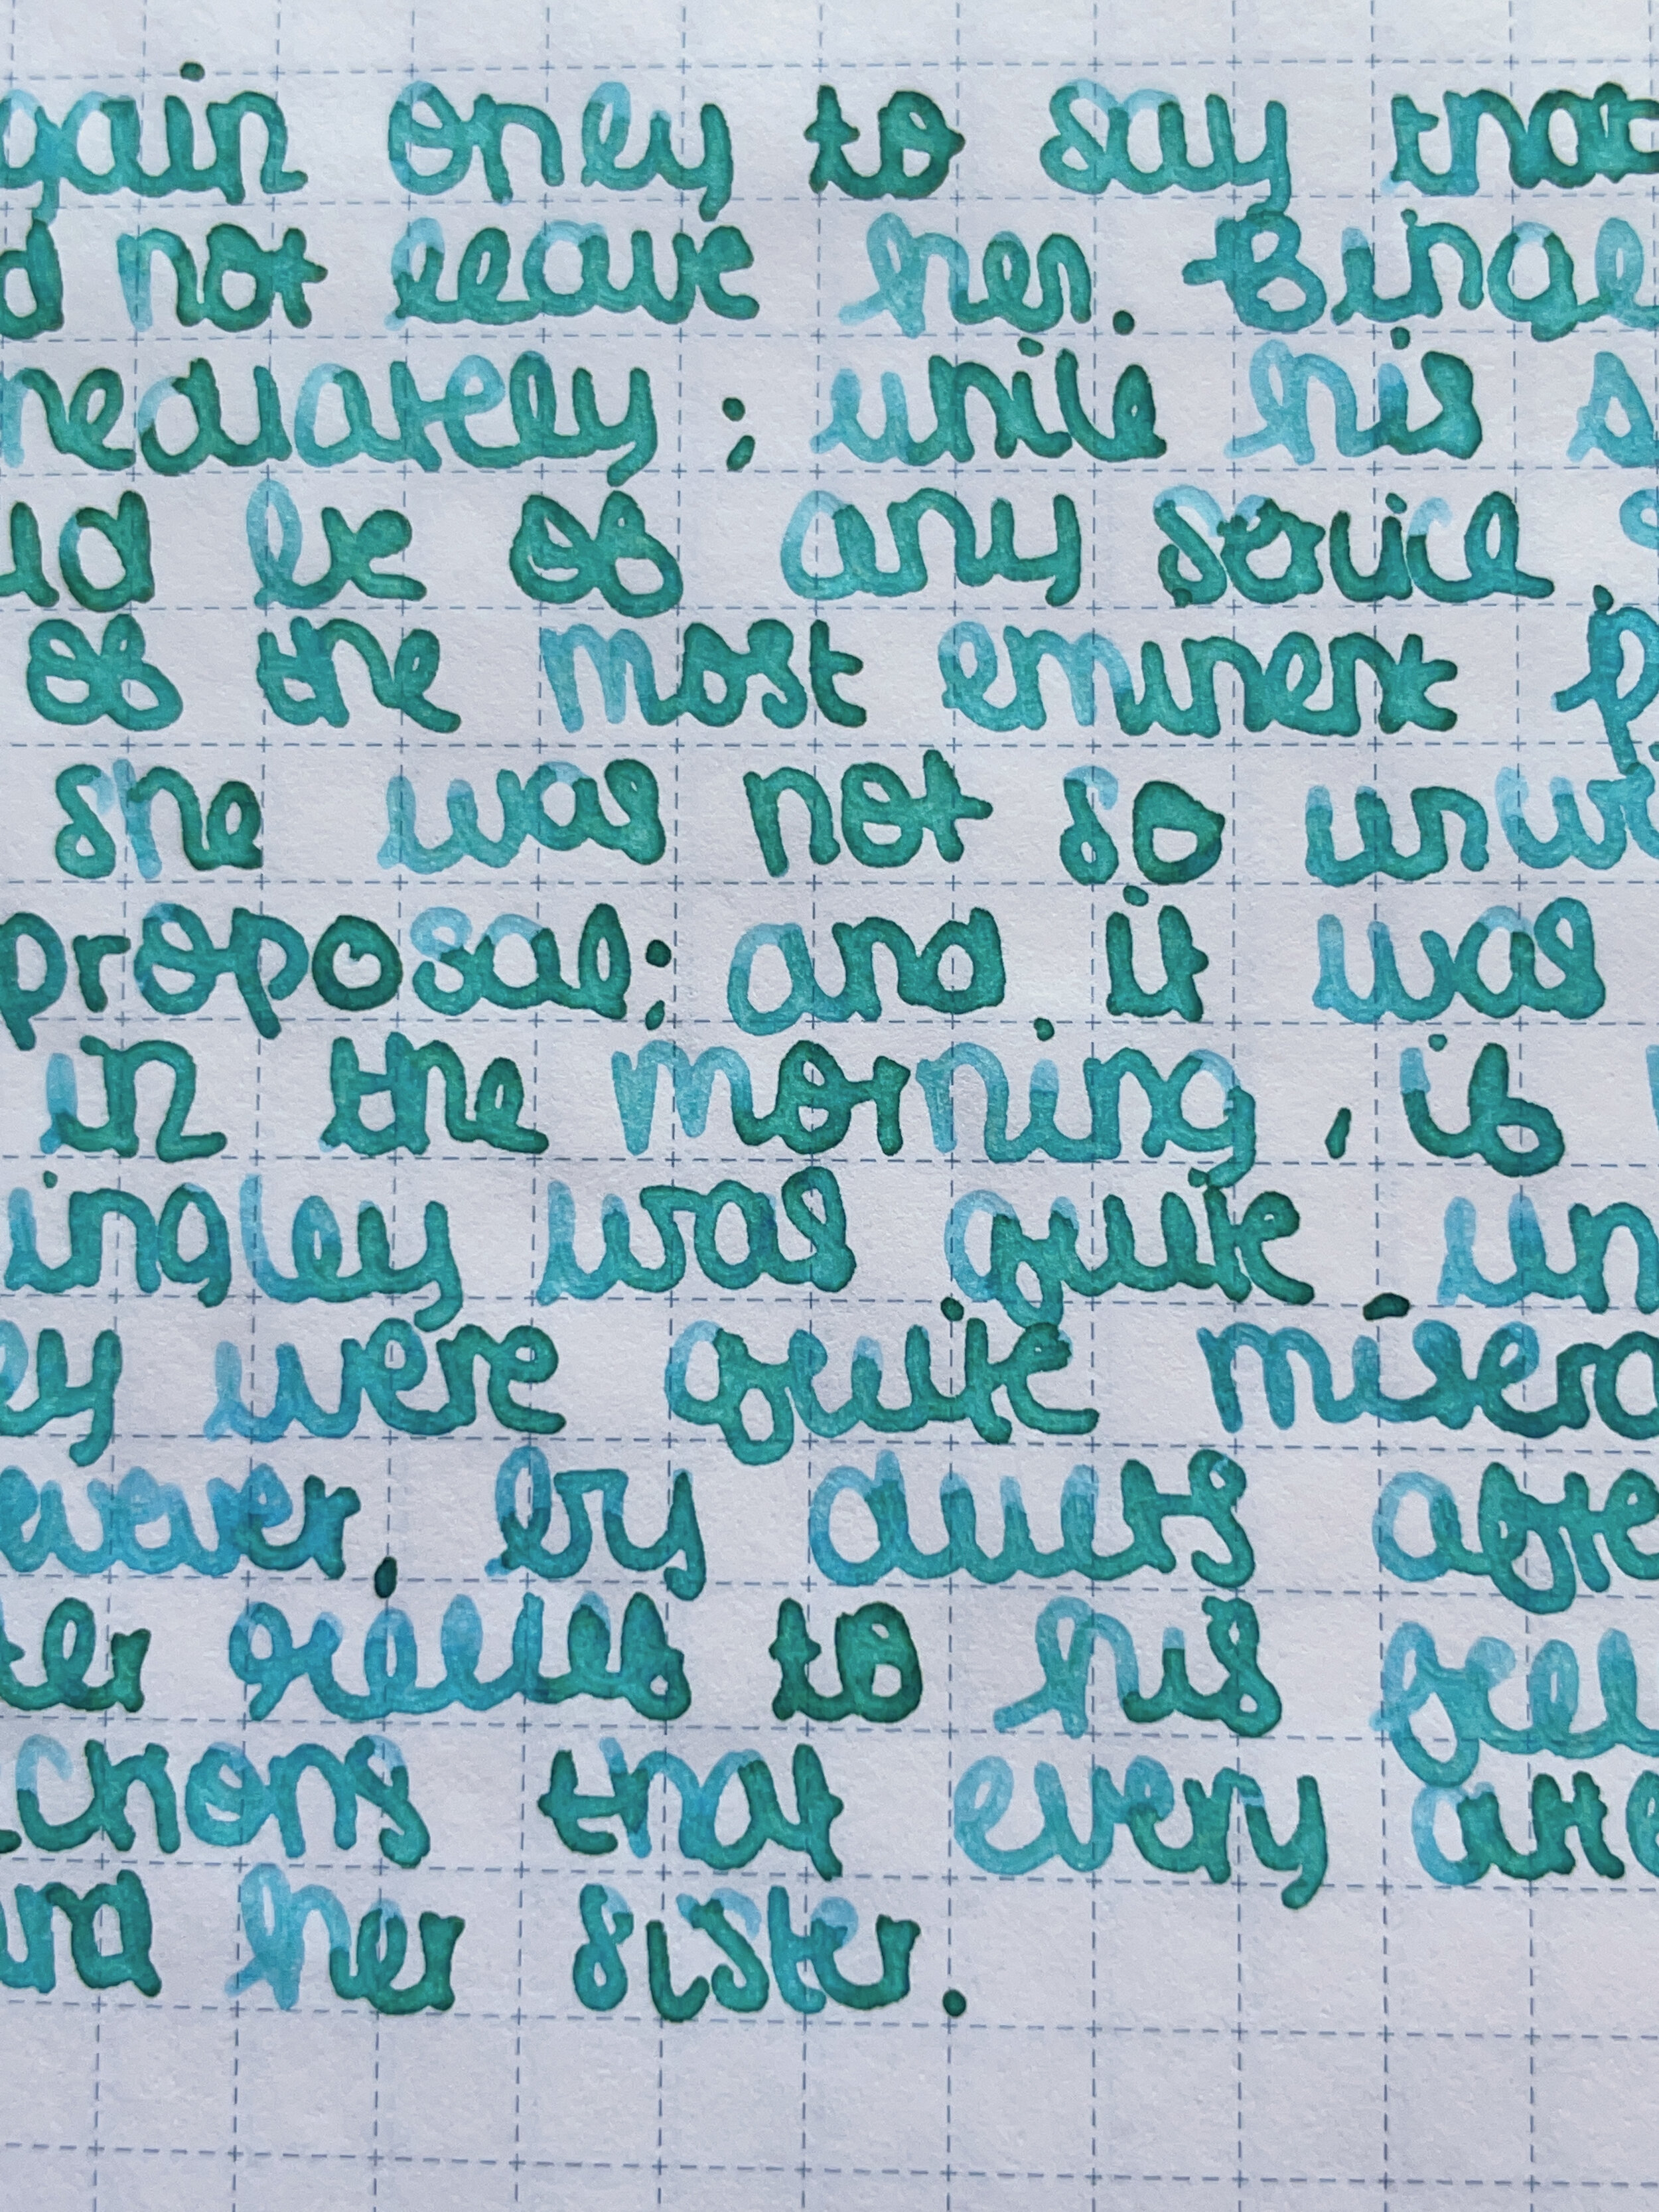 gain only to say that
d not leave her. Bingl
mediately; while his s
uld be of any service.
of the most eminent p
she was not so unwi
proposal; and it was
in the morning, if
ingley was quite un
ey were quite misera
ewever, by duets afte
ter relief to his feel
ctions that every atte
and her sister.